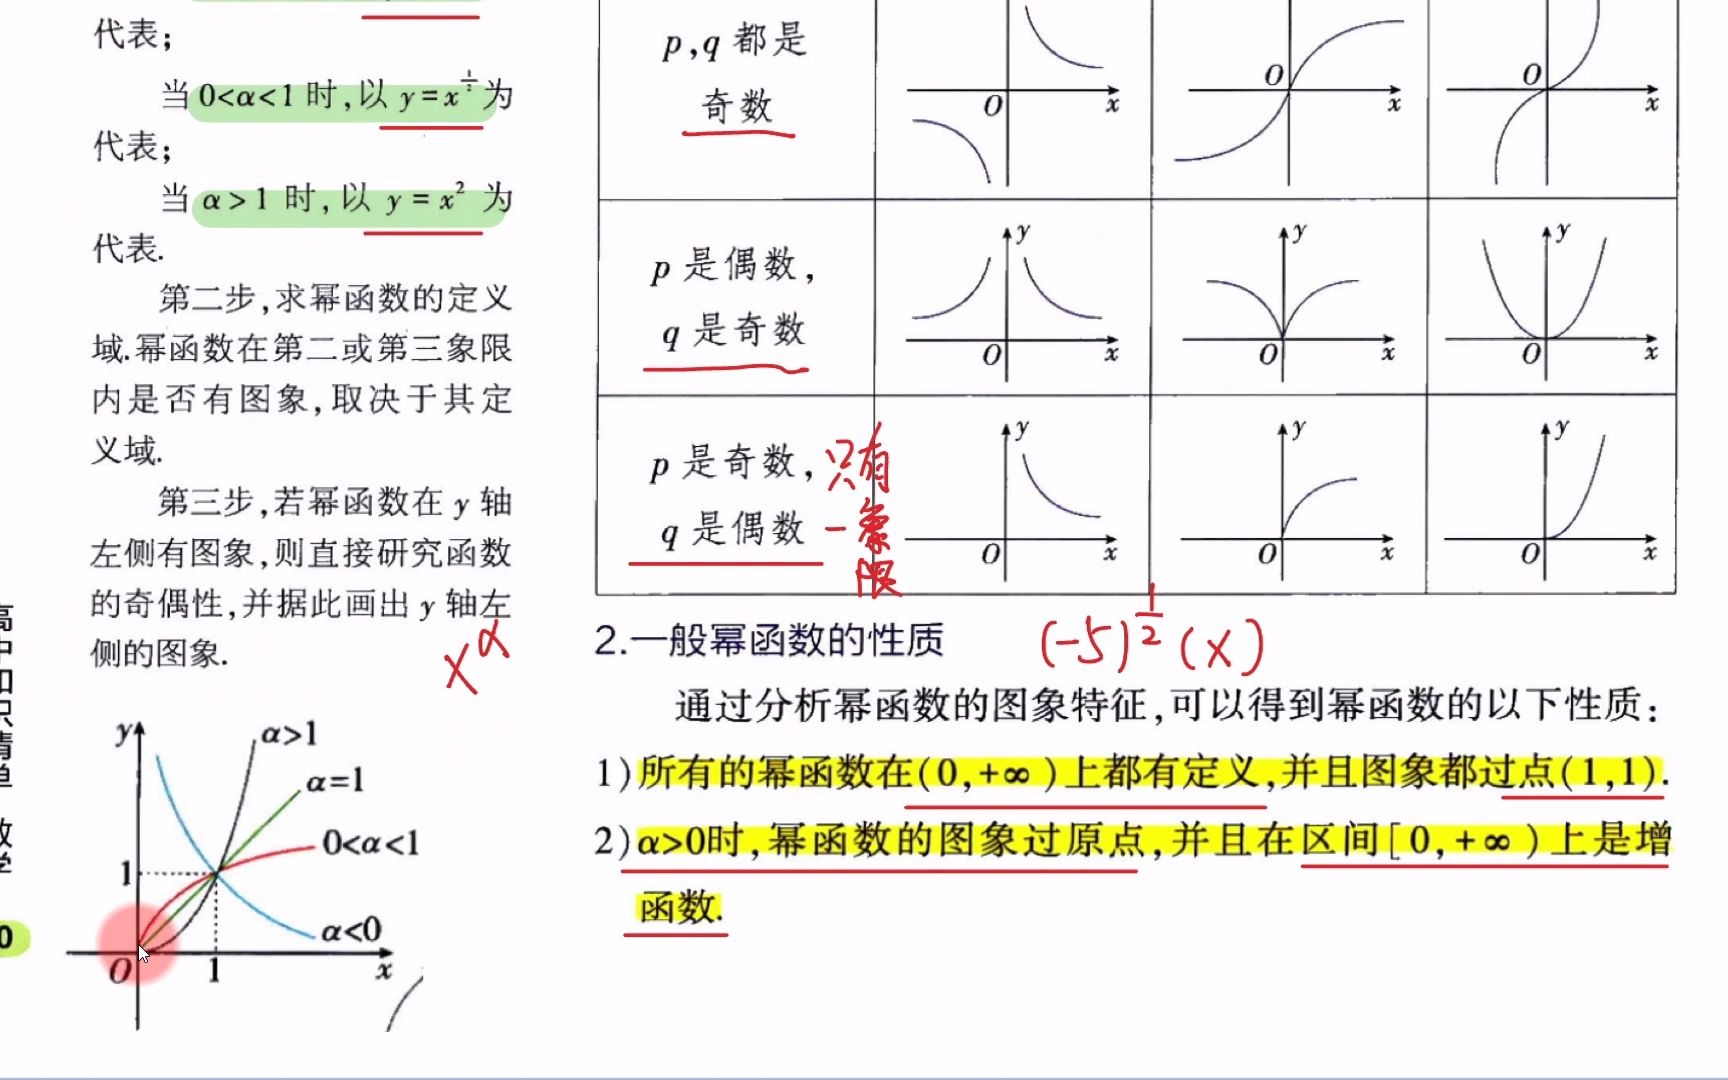 代表;
当 0<α<1 时,以 y=x^½ 为
代表;
当 α>1 时,以 y=x² 为
代表.
第二步,求幂函数的定义
域.幂函数在第二或第三象限
内是否有图象,取决于其定
义域.
第三步,若幂函数在 y 轴
左侧有图象,则直接研究函数
的奇偶性,并据此画出 y 轴左
侧的图象.
x^α
y
α>1
α=1
0<α<1
α<0
1
O
1
x
p,q 都是
奇数
O
x
O
x
O
x
p 是偶数,
q 是奇数
y
O
x
y
O
x
y
O
x
p 是奇数,
q 是偶数
只有
一象
限
y
O
x
y
O
x
y
O
x
2.一般幂函数的性质
(-5)^½ (x)
通过分析幂函数的图象特征,可以得到幂函数的以下性质:
1)所有的幂函数在(0,+∞)上都有定义,并且图象都过点(1,1).
2)α>0时,幂函数的图象过原点,并且在区间[0,+∞)上是增
函数.